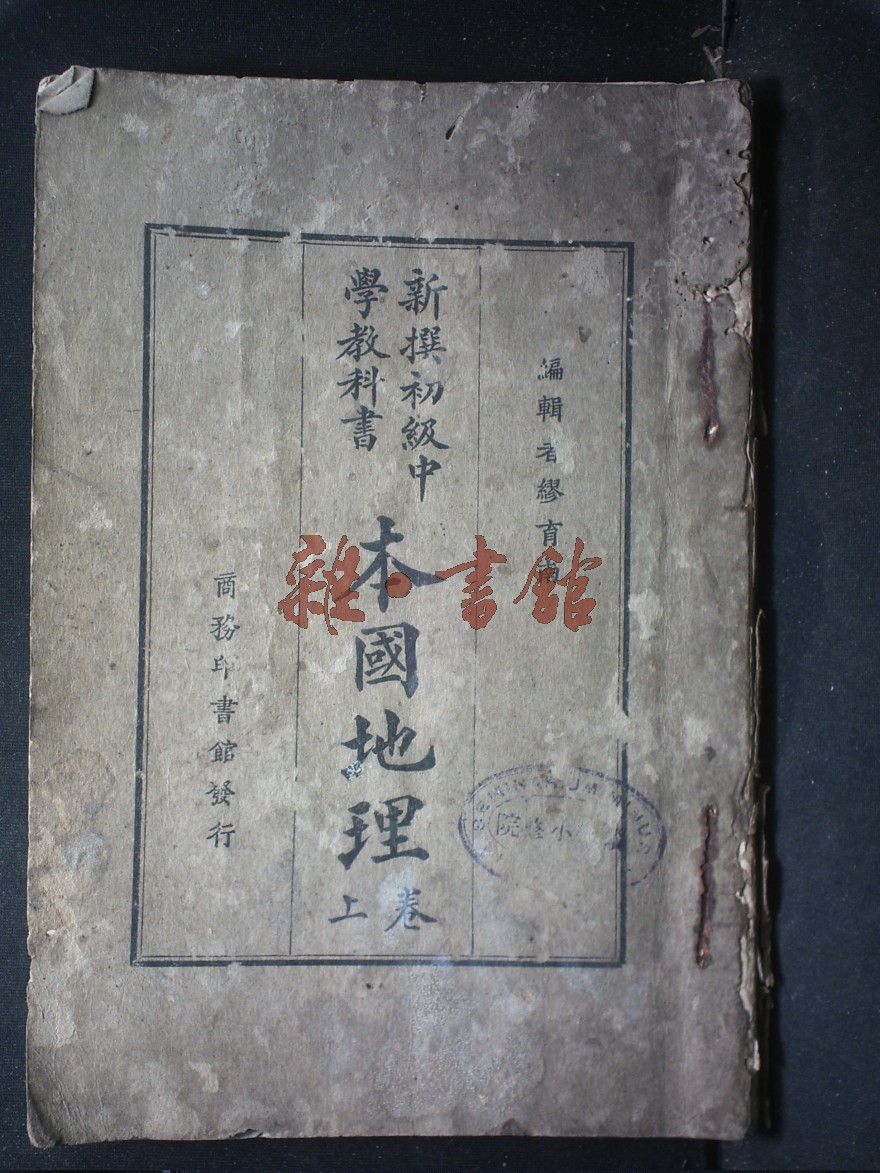 編輯者繆育南
新撰初級中
學教科書
本國地理
卷上
商務印書館發行
雜·書館
小修院